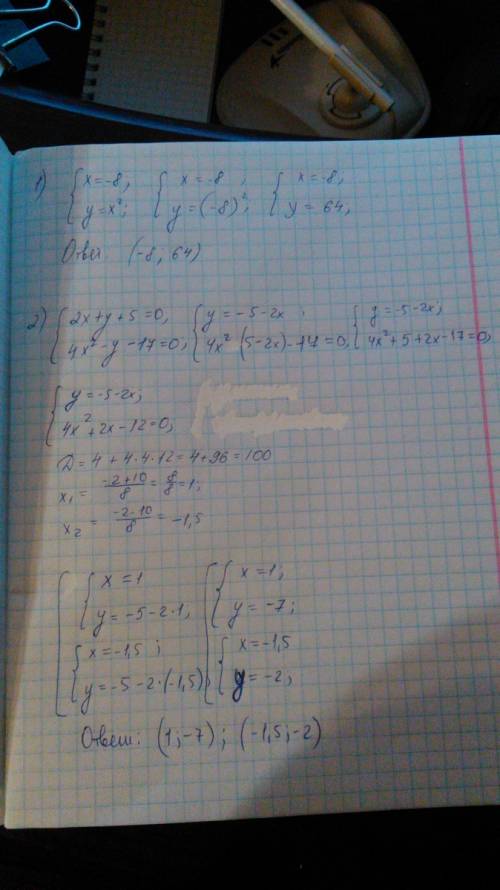 1) { x=-8, y=x²; { x=-8; y=(-8)²; { x=-8, y=64,
Ответ (-8; 64)
2) { 2x+y+5=0, 4x²-y-17=0; { y=-5-2x; 4x² (5-2x)-17=0, { y=-5-2x; 4x²+5+2x-17=0,
{ y=-5-2x; 4x²+2x-12=0,
D=4+4·4·12=4+96=100
x₁= (-2+10)/8 = 8/8 =1;
x₂ = (-2-10)/8 = -1,5
[ { x=1 y=-5-2·1, [ { x=1; y=-7;
{ x=-1,5; y=-5-2·(-1,5), { x=-1,5 y=-2;
Ответ: (1;-7); (-1,5;-2)